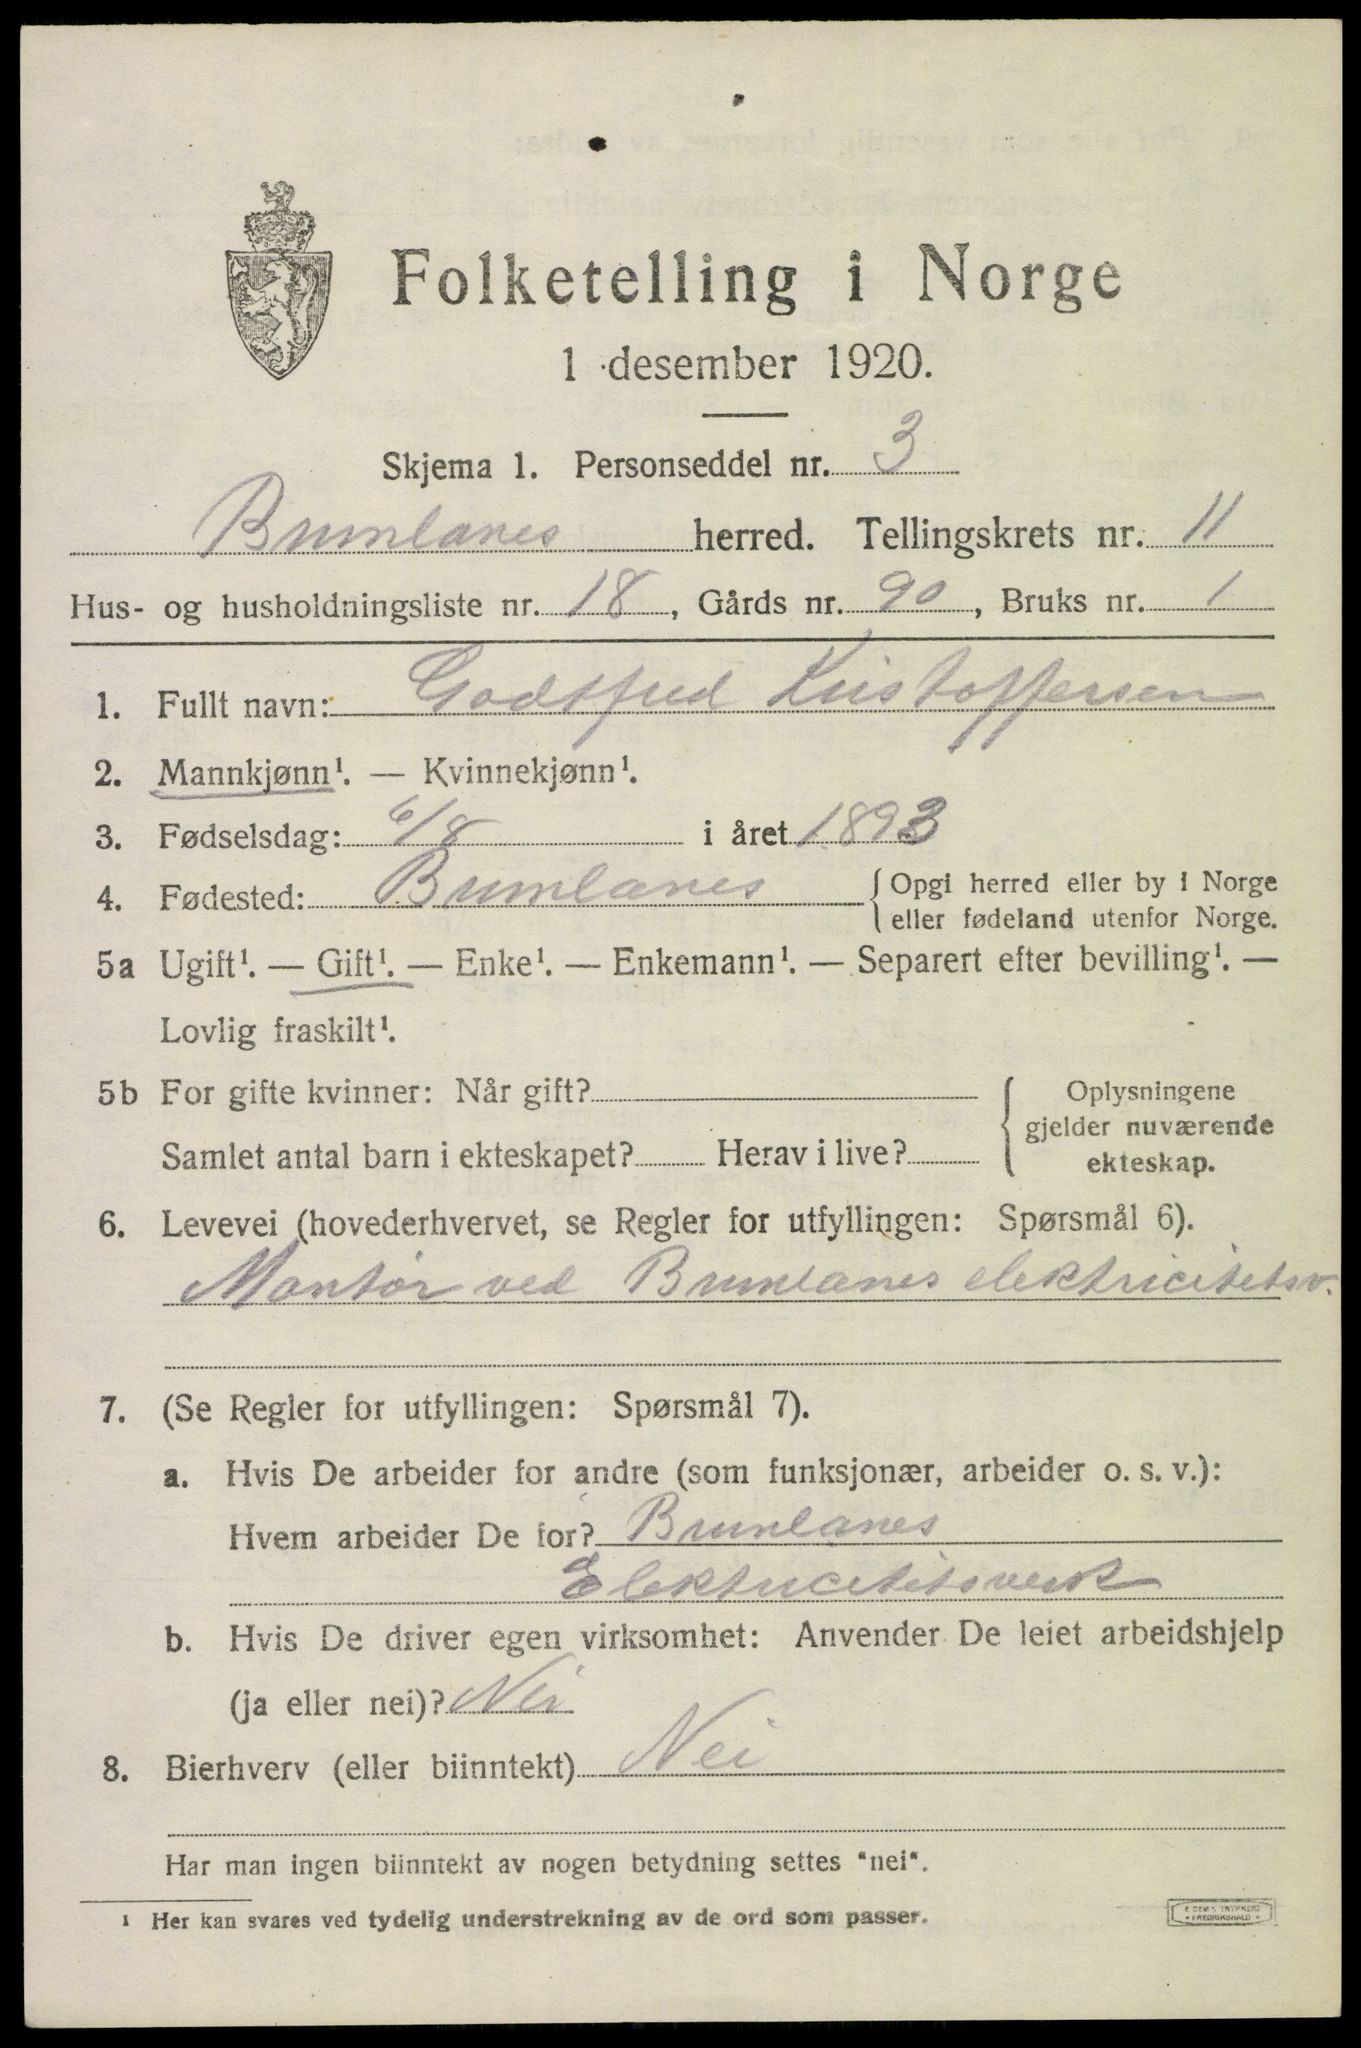 Folketelling i Norge
1 desember 1920.
Skjema 1. Personseddel nr. 3
Brunlanes herred. Tellingskrets nr. 11
Hus- og husholdningsliste nr. 18, Gårds nr. 90, Bruks nr. 1
1. Fullt navn: Godtfred Kristoffersen
2. Mannkjønn¹. — Kvinnekjønn¹.
3. Fødselsdag: 6/8 i året 1893
4. Fødested: Brunlanes {Opgi herred eller by i Norge
eller fødeland utenfor Norge.
5a Ugift¹. — Gift¹. — Enke¹. — Enkemann¹. — Separert efter bevilling¹. —
Lovlig fraskilt¹.
5b For gifte kvinner: Når gift? { Oplysningene
gjelder nuværende
Samlet antal barn i ekteskapet? Herav i live? ekteskap.
6. Levevei (hovederhvervet, se Regler for utfyllingen: Spørsmål 6).
Montør ved Brunlanes elektricitetsv.
7. (Se Regler for utfyllingen: Spørsmål 7).
a. Hvis De arbeider for andre (som funksjonær, arbeider o. s. v.):
Hvem arbeider De for? Brunlanes
Elektricitetsverk
b. Hvis De driver egen virksomhet: Anvender De leiet arbeidshjelp
(ja eller nei)? Nei
8. Bierhverv (eller biinntekt) Nei
Har man ingen biinntekt av nogen betydning settes "nei".
¹ Her kan svares ved tydelig understrekning av de ord som passer.
E SEM'S TRYKKERI
FREDRIKSHALD